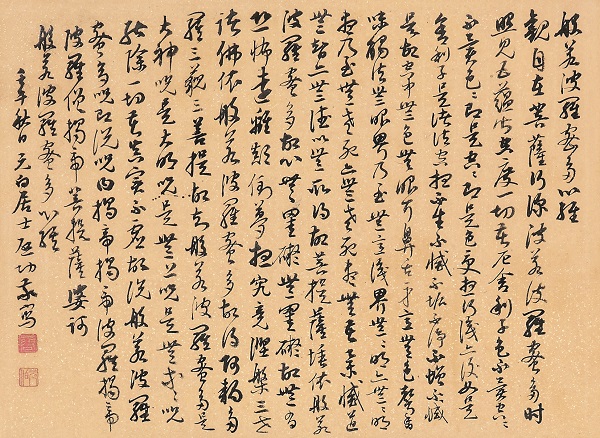 般若波羅蜜多心經
觀自在菩薩行深般若波羅蜜多時
照見五蘊皆空度一切苦厄舍利子色不異空空
不異色色即是空空即是色受想行識亦復如是
舍利子是諸法空相不生不滅不垢不淨不增不減
是故空中無色無眼耳鼻舌身意無色聲香
味觸法無眼界乃至無意識界無無明亦無無明
盡乃至無老死亦無老死盡無苦集滅道
無智亦無得以無所得故菩提薩埵依般若
波羅蜜多故心無罣礙無罣礙故無有
恐怖遠離顛倒夢想究竟涅槃三世
諸佛依般若波羅蜜多故得阿耨多
羅三藐三菩提故知般若波羅蜜多是
大神咒是大明咒是無上咒是無等等咒
能除一切苦真實不虛故說般若波羅
蜜多咒即說咒曰揭帝揭帝波羅揭帝
波羅僧揭帝菩提薩婆訶
般若波羅蜜多心經
秋日元白居士啟功敬寫